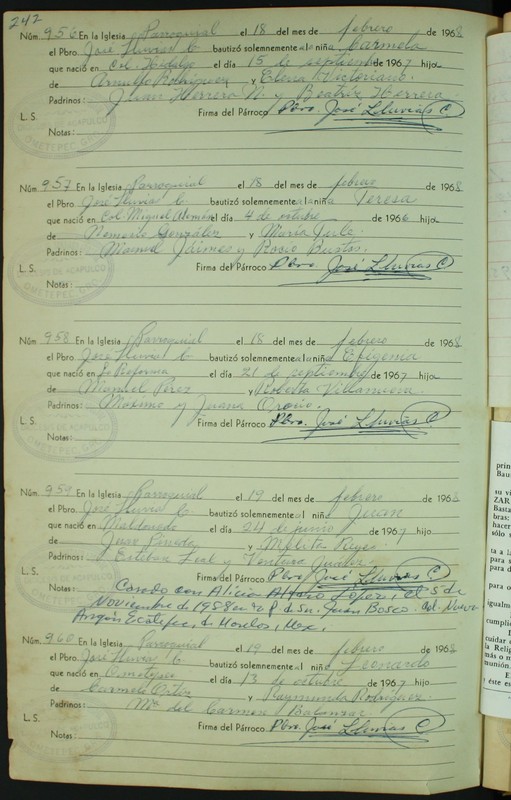 242
Núm. 956 En la Iglesia Parroquial el 18 del mes de febrero de 1968
el Pbro. José Lluvias C bautizó solemnemente a la niña Carmela
que nació en Col. Hidalgo el día 15 de septiembre de 1967 hija
de Arnulfo Rodríguez y Elena Victoriano.
Padrinos: Juan Herrera N. y Beatriz Herrera.
L. S. Firma del Párroco Pbro. José Lluvias C
Notas:
Núm. 957 En la Iglesia Parroquial el 18 del mes de febrero de 1968
el Pbro José Lluvias C. bautizó solemnemente a la niña Teresa
que nació en Col. Miguel Alemán el día 4 de octubre de 1966 hija
de Nemorio González y María Julia
Padrinos: Manuel Jaimes y Rocio Bustos.
L. S. Firma del Párroco Pbro. José Lluvias C
Notas:
Núm. 958 En la Iglesia Parroquial el 18 del mes de febrero de 1968
el Pbro José Lluvias C bautizó solemnemente a la niña Efigenia
que nació en La Reforma el día 21 de septiembre de 1967 hija
de Manuel Pérez y Roberta Villanueva.
Padrinos: Maximo y Juana
L. S. Firma del Párroco Pbro. José Lluvias C
Notas:
Núm. 959 En la Iglesia Parroquial el 19 del mes de febrero de 1968
el Pbro. José Lluvias C bautizó solemnemente al niño Juan
que nació en Maldonado el día 24 de junio de 1967 hijo
de Juan Pineda y Melita Reyes.
Padrinos: Esteban Leal y
L. S. Firma del Párroco Pbro. José Lluvias C
Notas: Casado con Alicia López, el 5 de
Noviembre de 1988 en la P. de Sn. Juan Bosco. Col. Nueva
Aragón Ecatepec de Morelos, Mex.
Núm. 960 En la Iglesia Parroquial el 19 del mes de febrero de 1968
el Pbro. José Lluvias C bautizó solemnemente al niño Leonardo
que nació en Ometepec el día 13 de octubre de 1967 hijo
de Carmelo y Raymunda Rodríguez.
Padrinos: Ma. del Carmen Balanzar.
L. S. Firma del Párroco Pbro. José Lluvias C
Notas: